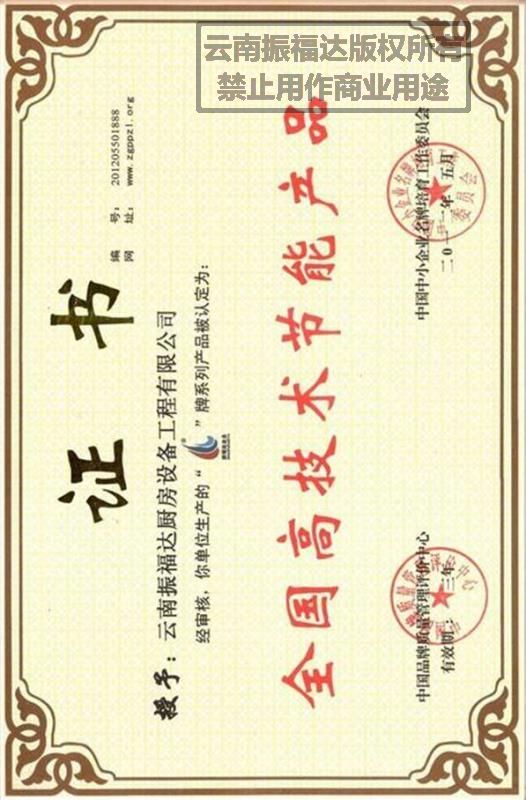 云南振福达版权所有
禁止用作商业用途
证书
编 号：201205501888
网 址：www.zgppzl.org
授予：云南振福达厨房设备工程有限公司
经审核，你单位生产的“ ”牌系列产品被认定为：
全国高技术节能产品
中国品牌质量管理评价中心
有效期：三年
中国中小企业名牌培育工作委员会
二〇一一年 五月